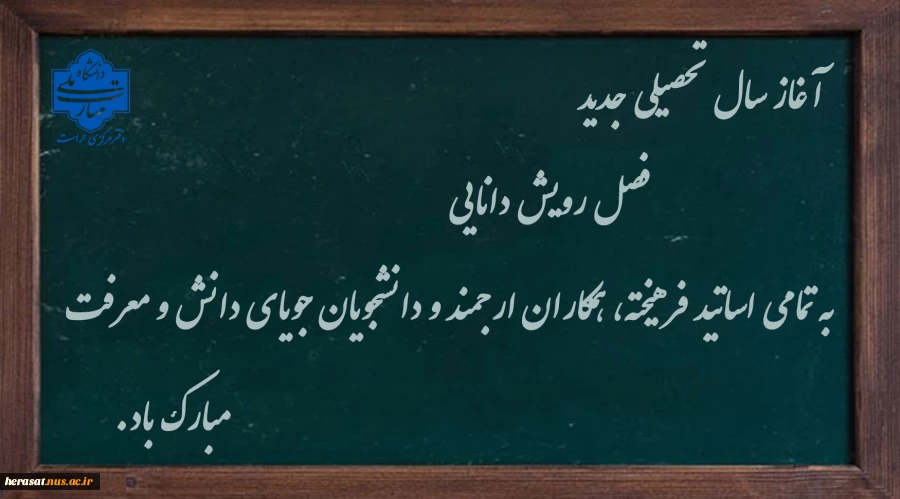 دانشگاه
ملی
مهارت
دفتر مرکزی حراست
آغاز سال تحصیلی جدید
فصل رویش دانایی
به تمامی اساتید فرهیخته، همکاران ارجمند و دانشجویان جویای دانش و معرفت
مبارک باد.
herasat.nus.ac.ir